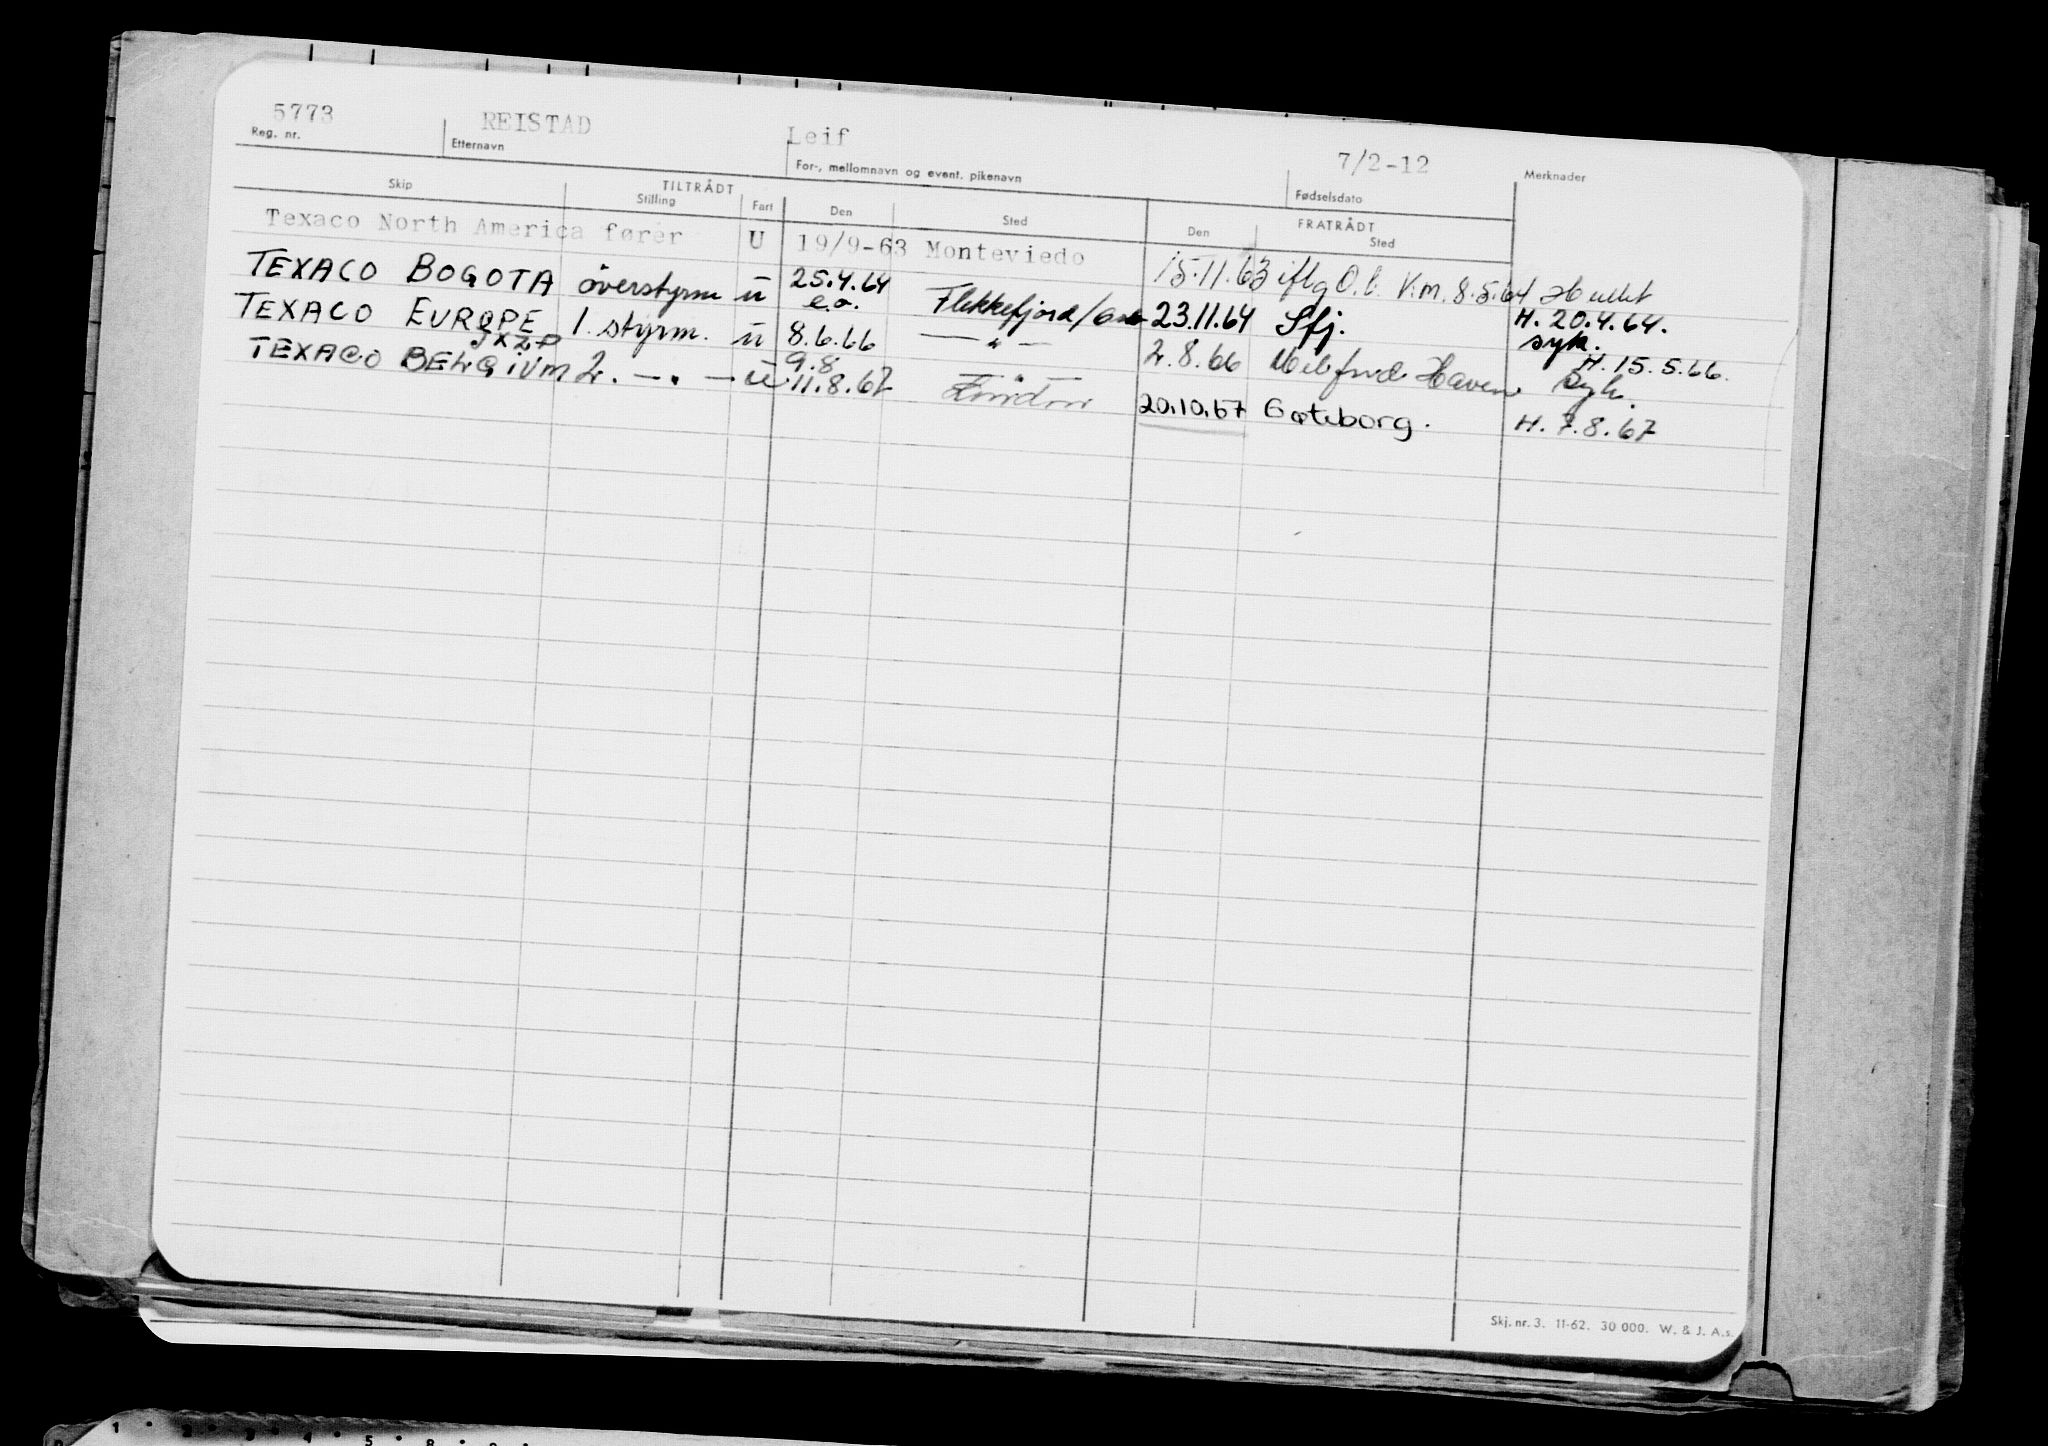 5773 REISTAD Leif 7/2-12
Reg. nr. Etternavn For-, mellomnavn og event. pikenavn Fødselsdato Merknader
TILTRÅDT FRATRÅDT
Skip Stilling Fart Den Sted Den Sted
Texaco North America fører U 19/9-63 Monteviedo 15.11.63 iflg O.l. V.m. 8.5.64
TEXACO BOGOTA överstyrm ü 25.4.64 Flekkefjord/ 23.11.64 Sfj. H. 20.4.64.
e.o. syk.
TEXACO EUROPE 1. styrm. ü 8.6.66 — " — 2.8.66 Milford Haven H. 15.5.66.
JXZP 9.8 Syk.
TEXACO BELGIUM 2. — " — ü 11.8.67 20.10.67 Gøteborg. H. 7.8.67
Skj. nr. 3. 11-62. 30 000. W. & J. A.s.
1 2 3 4 5